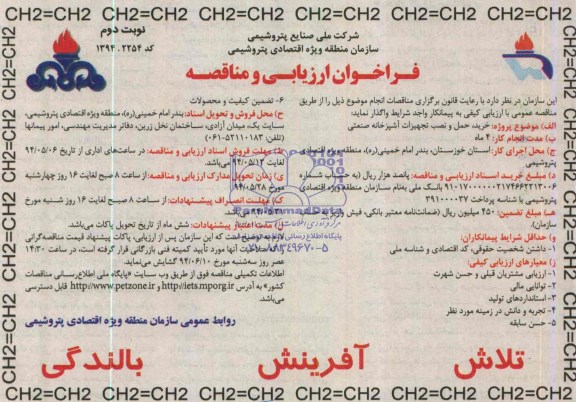 CH2=CH2 CH2=CH2 CH2=CH2 CH2=CH2 CH2=CH2 CH2=CH2 CH2=CH2
شرکت ملی صنایع پتروشیمی
سازمان منطقه ویژه اقتصادی پتروشیمی
نوبت دوم
کد ۱۳۹۴.۲۲۵۴
فراخوان ارزیابی و مناقصه
این سازمان در نظر دارد با رعایت قانون برگزاری مناقصات انجام موضوع ذیل را از طریق
مناقصه عمومی با ارزیابی کیفی به پیمانکار واجد شرایط واگذار نماید:
الف) موضوع پروژه: خرید، حمل و نصب تجهیزات آشپزخانه صنعتی
ب) مدت انجام کار: ۴ ماه
ج) محل اجرای کار: استان خوزستان، بندر امام خمینی(ره)، منطقه ویژه اقتصادی
پتروشیمی
د) مبلغ خرید اسناد ارزیابی و مناقصه: پانصد هزار ریال (به حساب شماره
۲۱۷۴۶۶۲۲۱۳۰۰۶ بانک ملی بنام سازمان منطقه ویژه اقتصادی
پتروشیمی با شناسه پرداخت ۳۹۱۰۰۰۰۳۷
ه) مبلغ تضمین: ۴۵۰ میلیون ریال (ضمانتنامه معتبر بانکی، فیش واریزی
سازمان).
و) حداقل شرایط پیمانکاران:
- داشتن شخصیت حقوقی، کد اقتصادی و شناسه ملی
ز) معیارهای ارزیابی کیفی:
۱- ارزیابی مشتریان قبلی و حسن شهرت
۲- توانایی مالی
۳- استانداردهای تولید
۴- تجربه و دانش در زمینه مورد نظر
۵- حسن سابقه
۶- تضمین کیفیت و محصولات
ح) محل فروش و تحویل اسناد: بندر امام خمینی(ره)، منطقه ویژه اقتصادی پتروشیمی،
سایت یک، میدان آزادی، ساختمان نخل زرین، دفاتر مدیریت مهندسی، امور پیمانها
(تلفن: ۵۲۱۱۰۱۸۳-۰۶۱)
ط) مهلت فروش اسناد ارزیابی و مناقصه: در ساعت‌های اداری از تاریخ ۹۴/۰۵/۰۶
لغایت ۹۴/۰۵/۱۳ می‌باشد.
ی) زمان تحویل مدارک ارزیابی و مناقصه: از ساعت ۸ صبح لغایت ۱۶ روز چهارشنبه
مورخ ۹۴/۰۵/۲۸
ک) مهلت انصراف پیشنهادات: از ساعت ۸ صبح لغایت ۱۶ روز شنبه مورخ
ل) مدت اعتبار پیشنهادات: شش ماه از تاریخ تحویل پاکات می‌باشد.
لازم به توضیح است که این سازمان پس از ارزیابی، پاکات پیشنهاد قیمت مناقصه‌گرانی
که صلاحیت آنها مورد تأیید کمیته فنی بازرگانی قرار گرفته است، در ساعت ۱۴:۳۰
عصر روز سه‌شنبه مورخ ۹۴/۰۶/۱۰ گشایش می‌نماید.
اطلاعات تکمیلی مناقصه فوق از طریق وب سایت «پایگاه ملی اطلاع‌رسانی مناقصات
کشور» به آدرس http://iets.mporg.ir و http://www.petzone.ir قابل دسترسی
می‌باشد.
روابط عمومی سازمان منطقه ویژه اقتصادی پتروشیمی
تلاش آفرینش بالندگی
CH2=CH2 CH2=CH2 CH2=CH2 CH2=CH2 CH2=CH2 CH2=CH2 CH2=CH2